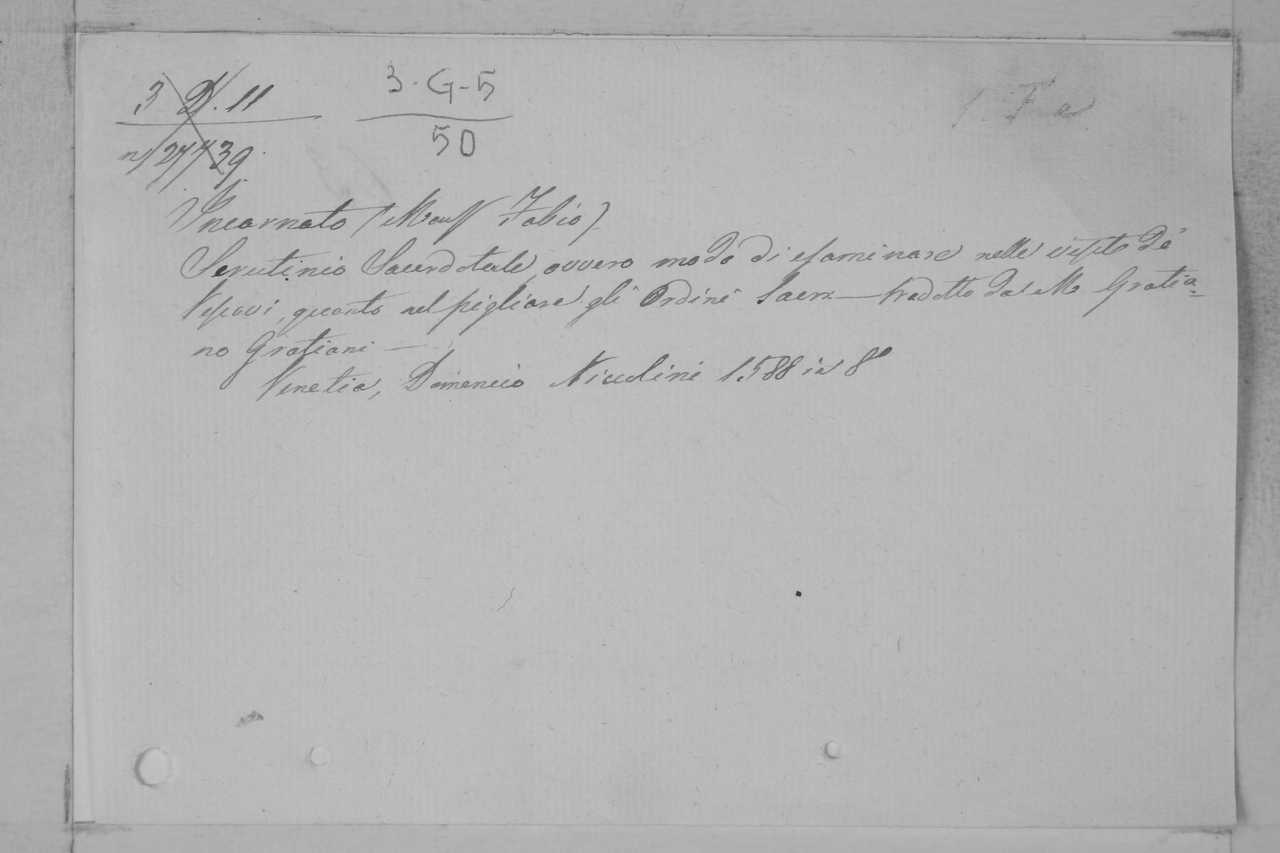 3 D. 11
n 27739
3-G-5
50
Incarnato (Mons Fabio)
Scrutinio Sacerdotale, ovvero modo di esaminare nelle visite de'
Vescovi, quanto nel pigliare gli Ordini Sacri — tradotto da M. Gratia=
no Gratiani —
Venetia, Domenico Nicolini 1588 in 8º